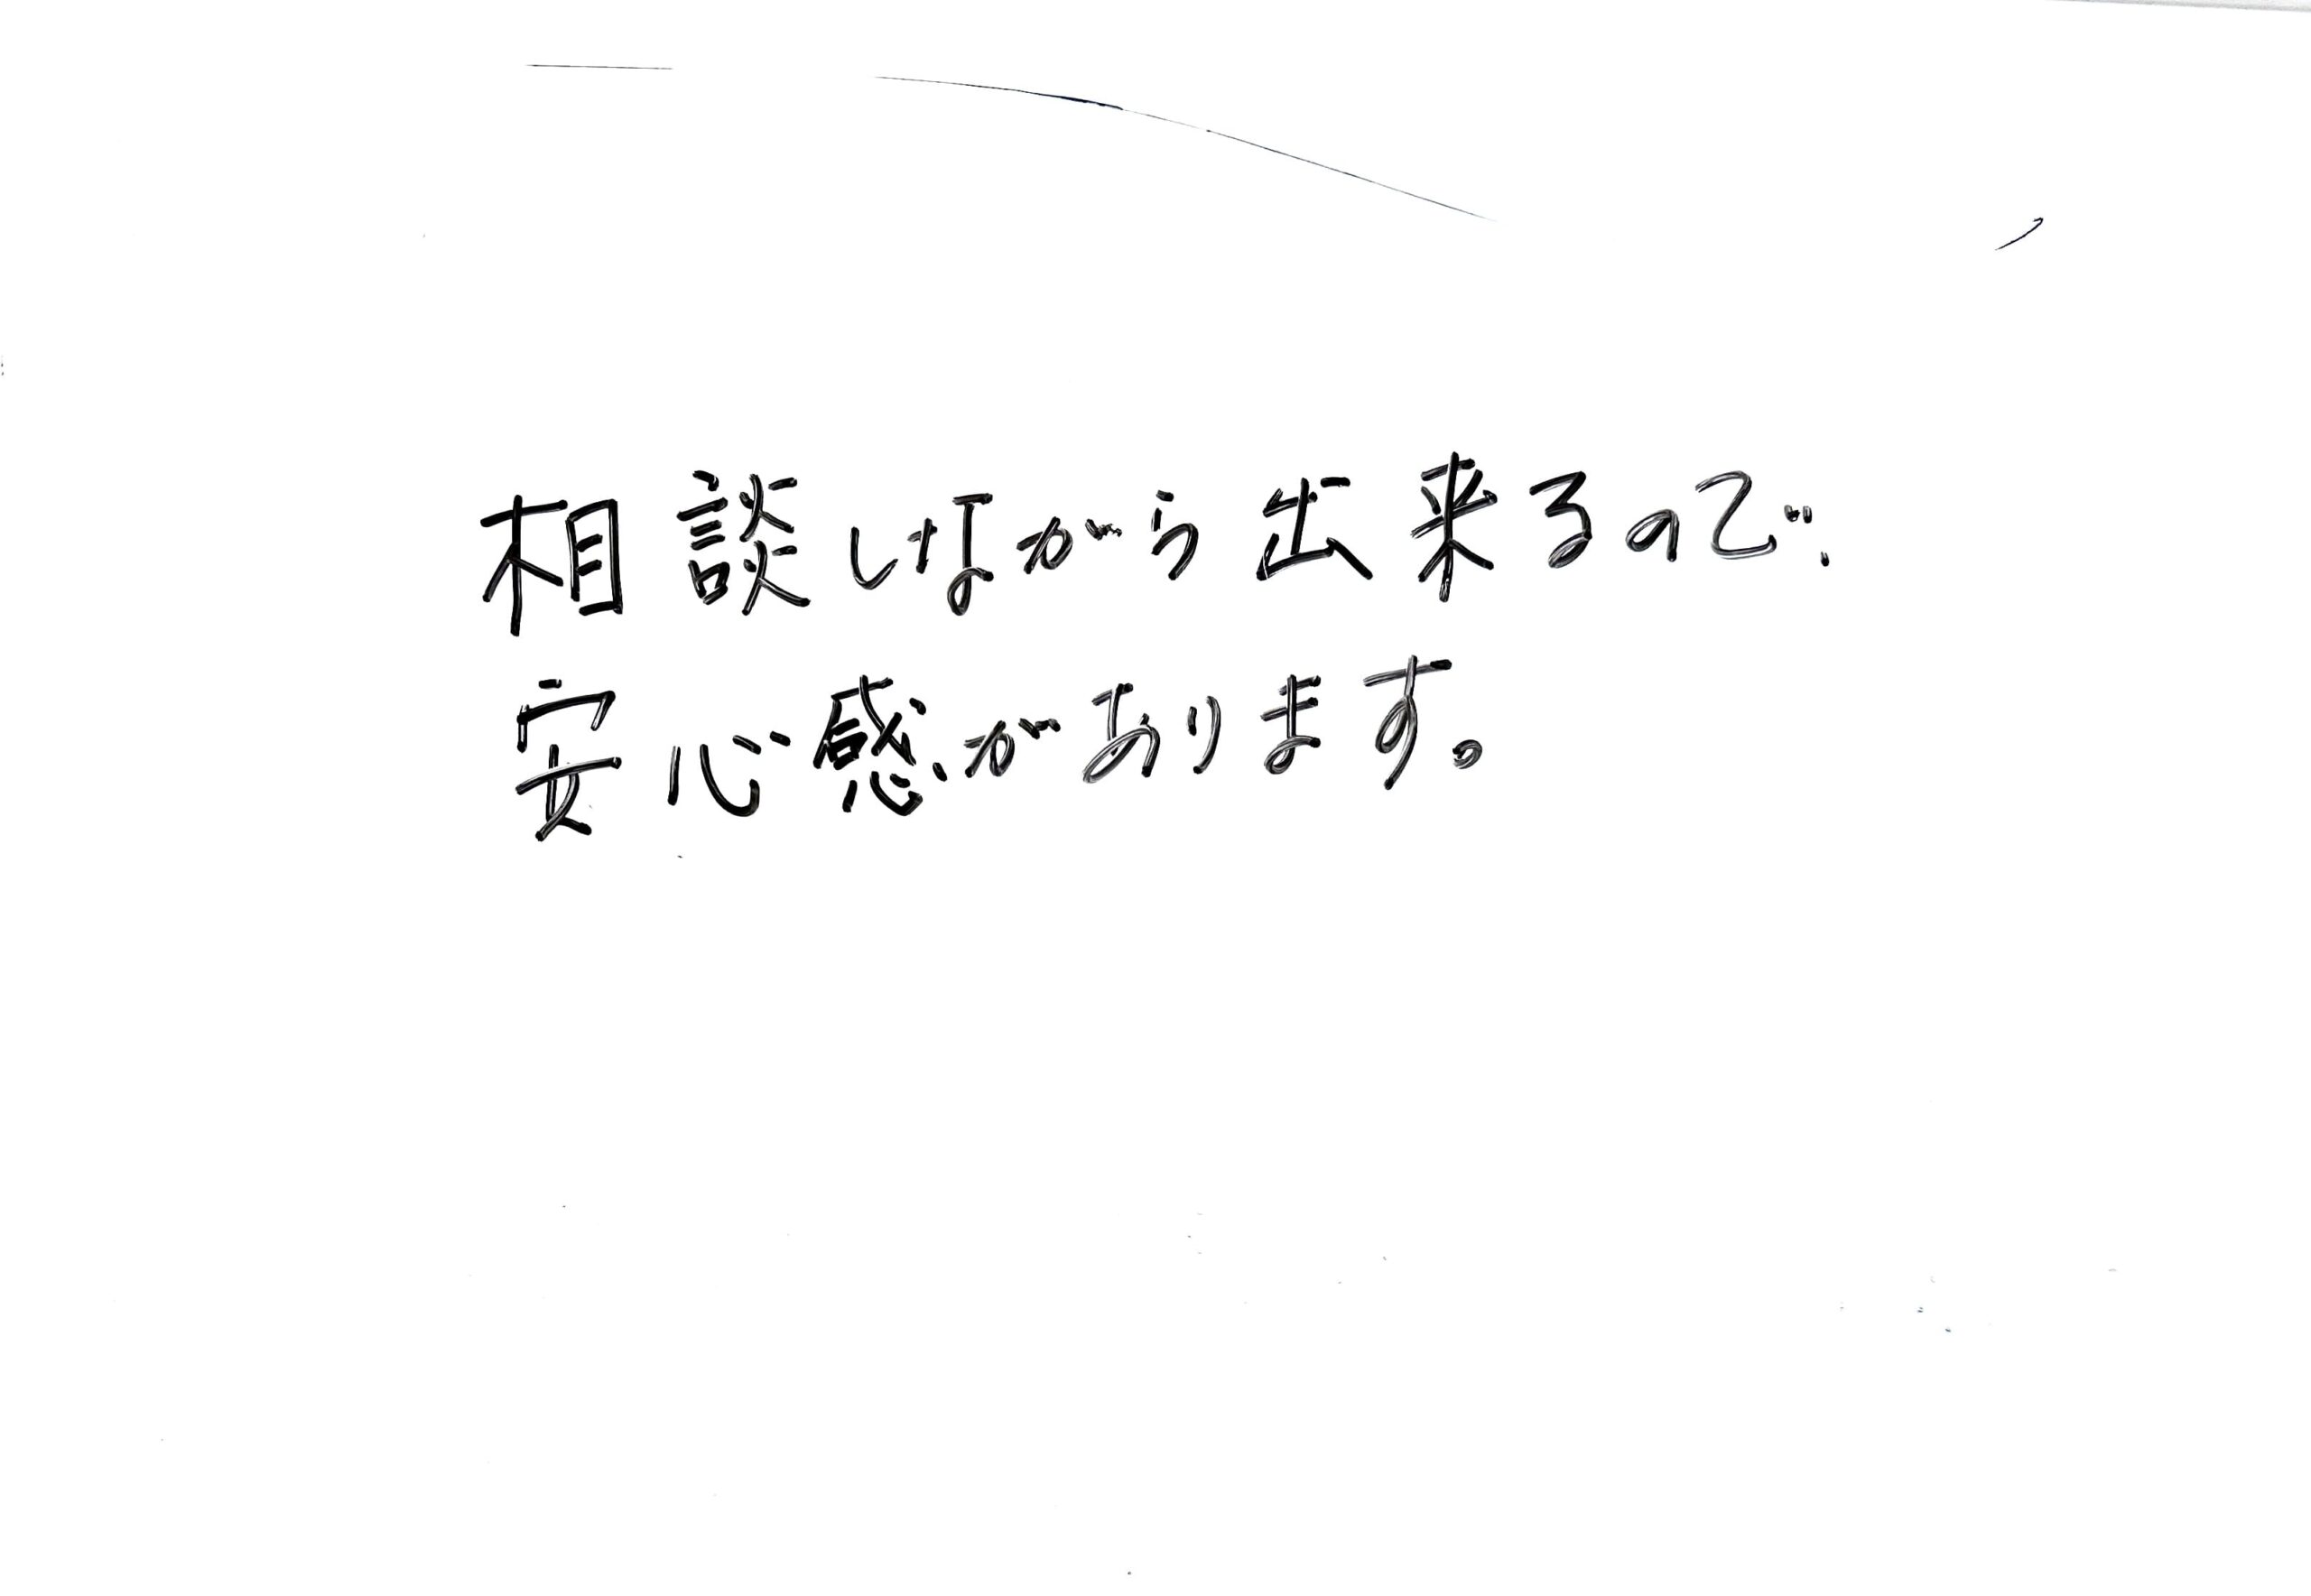 相談しながら出来るので、
安心感があります。